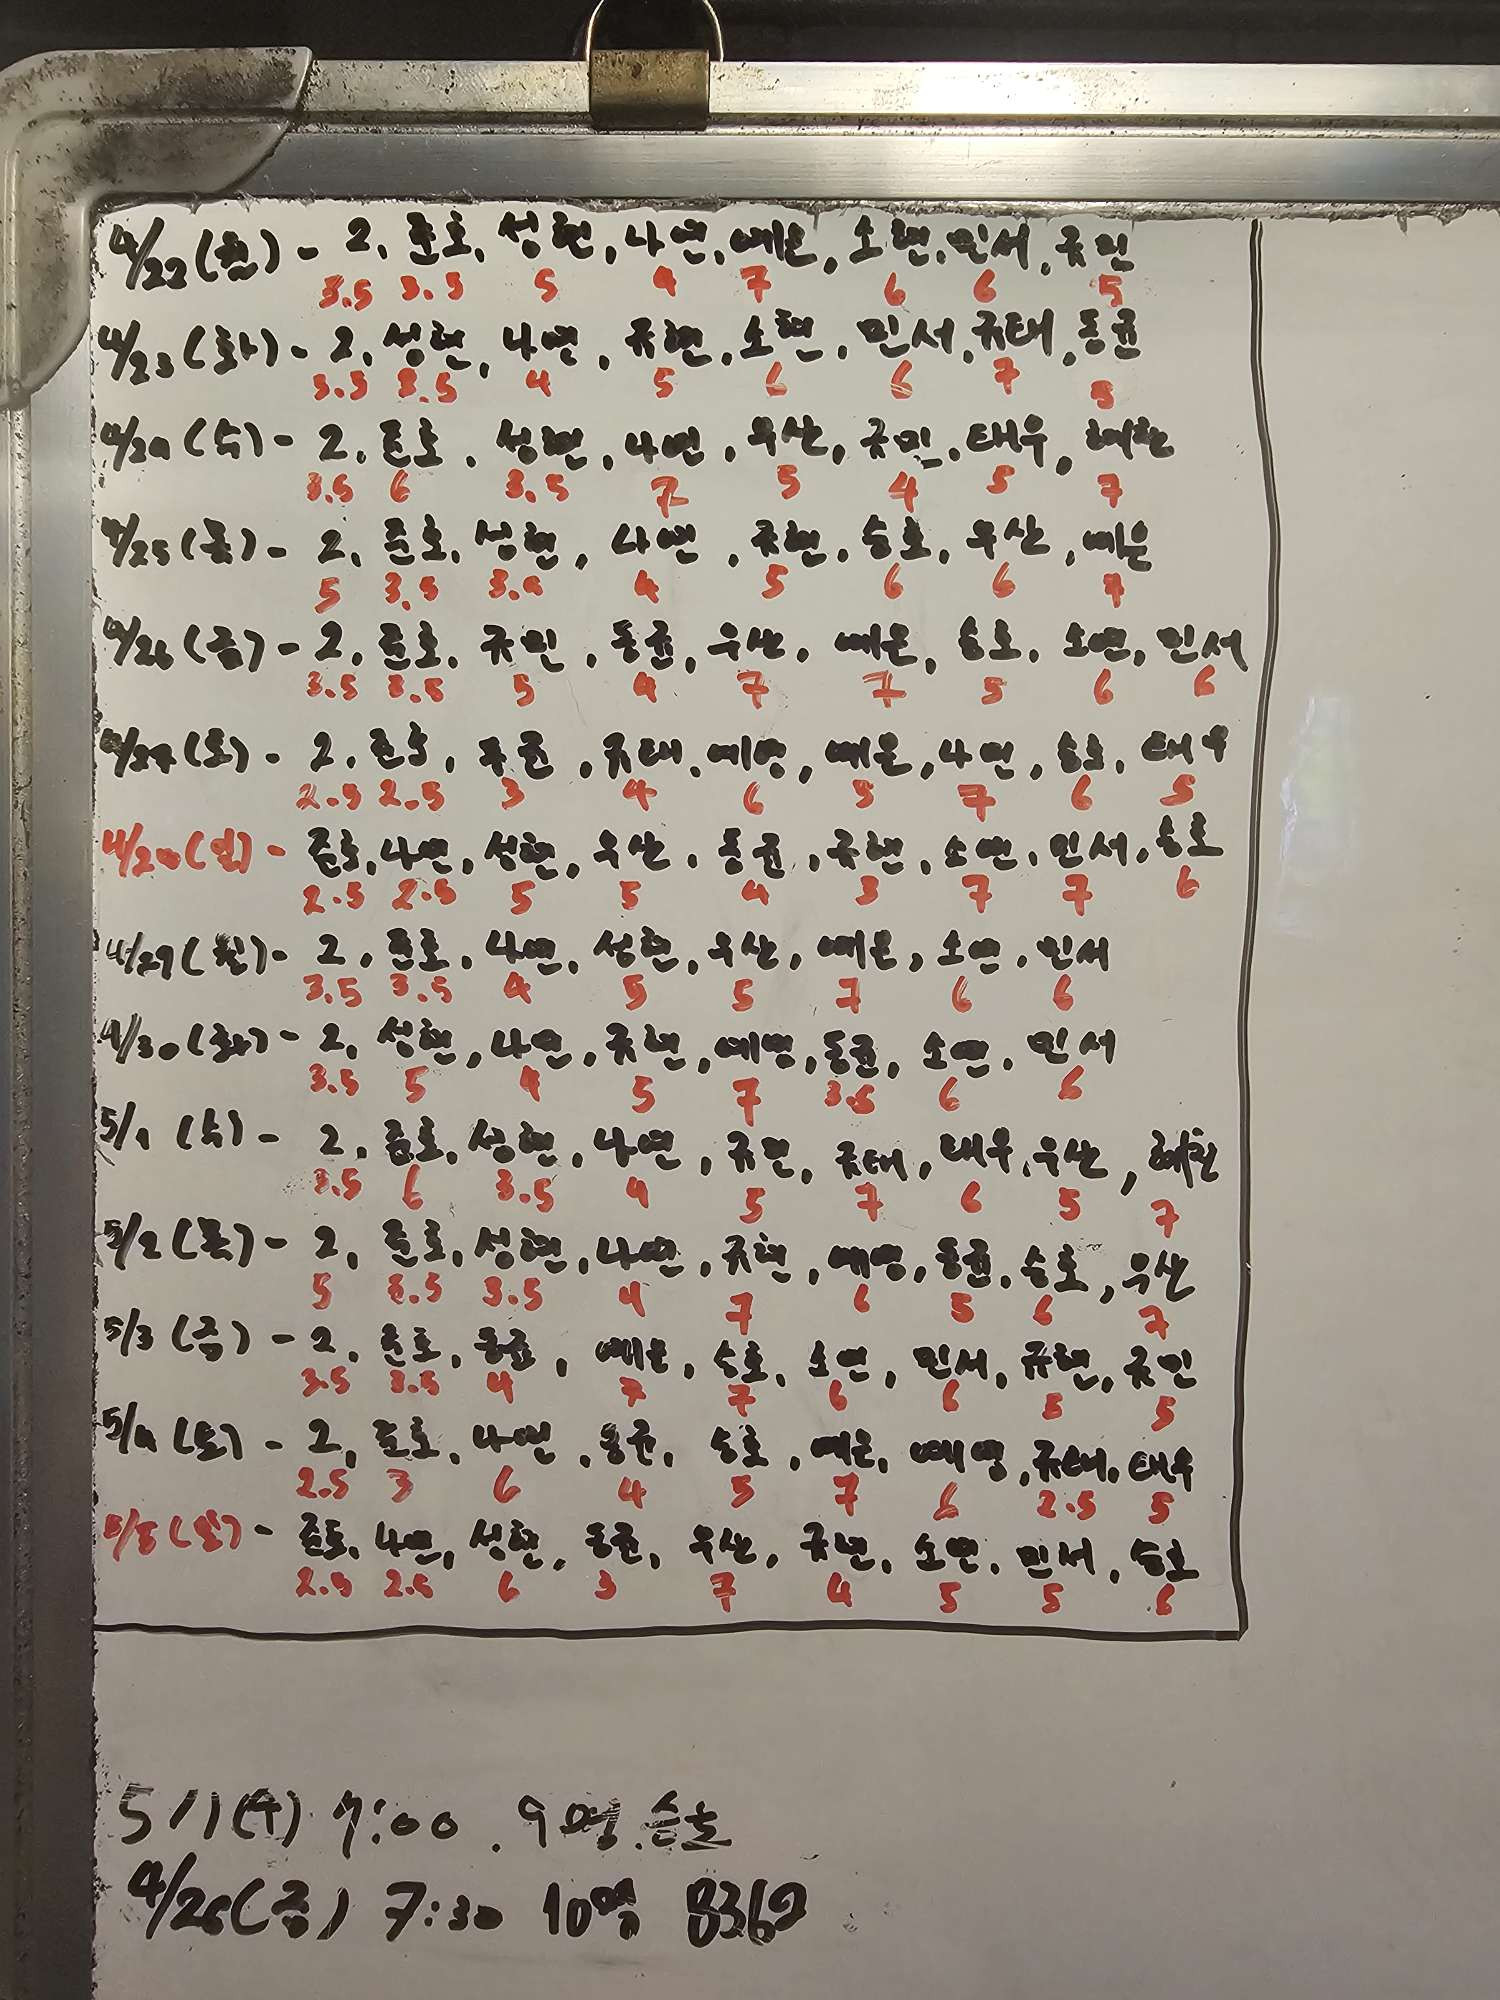 4/22(월) - 2, 준호, 성현, 나연, 예은, 소현, 민서, 규민
3.5 3.5 5 4 7 6 6 5
4/23(화) - 2, 성현, 나연, 규현, 소현, 민서, 규태, 동균
3.5 3.5 4 5 6 6 7 5
4/24(수) - 2, 준호, 성현, 나연, 우산, 규민, 태우, 혜찬
3.5 6 3.5 7 5 4 5 7
4/25(목) - 2, 준호, 성현, 나연, 규현, 승호, 우산, 예은
5 3.5 3.5 4 5 6 6 7
4/26(금) - 2, 준호, 규민, 동균, 우산, 예은, 승호, 소연, 민서
3.5 3.5 5 4 7 7 5 6 6
4/27(토) - 2, 준호, 동균, 규태, 예영, 예은, 나연, 승호, 태우
2.5 2.5 3 4 6 5 7 6 5
4/28(일) - 준호, 나연, 성현, 우산, 동균, 규현, 소연, 민서, 승호
2.5 2.5 5 5 4 3 7 7 6
4/29(월) - 2, 준호, 나연, 성현, 우산, 예은, 소연, 민서
3.5 3.5 4 5 5 7 6 6
4/30(화) - 2, 성현, 나연, 규현, 예영, 동균, 소연, 민서
3.5 5 4 5 7 3.5 6 6
5/1(수) - 2, 준호, 성현, 나연, 규민, 규태, 태우, 우산, 혜찬
3.5 6 3.5 4 5 7 6 5 7
5/2(목) - 2, 준호, 성현, 나연, 규현, 예영, 동균, 승호, 우산
5 3.5 3.5 4 7 6 5 6 7
5/3(금) - 2, 준호, 동균, 예은, 승호, 소연, 민서, 규현, 규민
3.5 3.5 4 7 7 6 6 5 5
5/4(토) - 2, 준호, 나연, 동균, 승호, 예은, 예영, 규태, 태우
2.5 3 6 4 5 7 6 2.5 5
5/5(일) - 준호, 나연, 성현, 동균, 우산, 규현, 소연, 민서, 승호
2.5 2.5 6 3 7 4 5 5 6
5/1(수) 7:00. 9명. 승호
4/26(금) 7:30 10명 8369